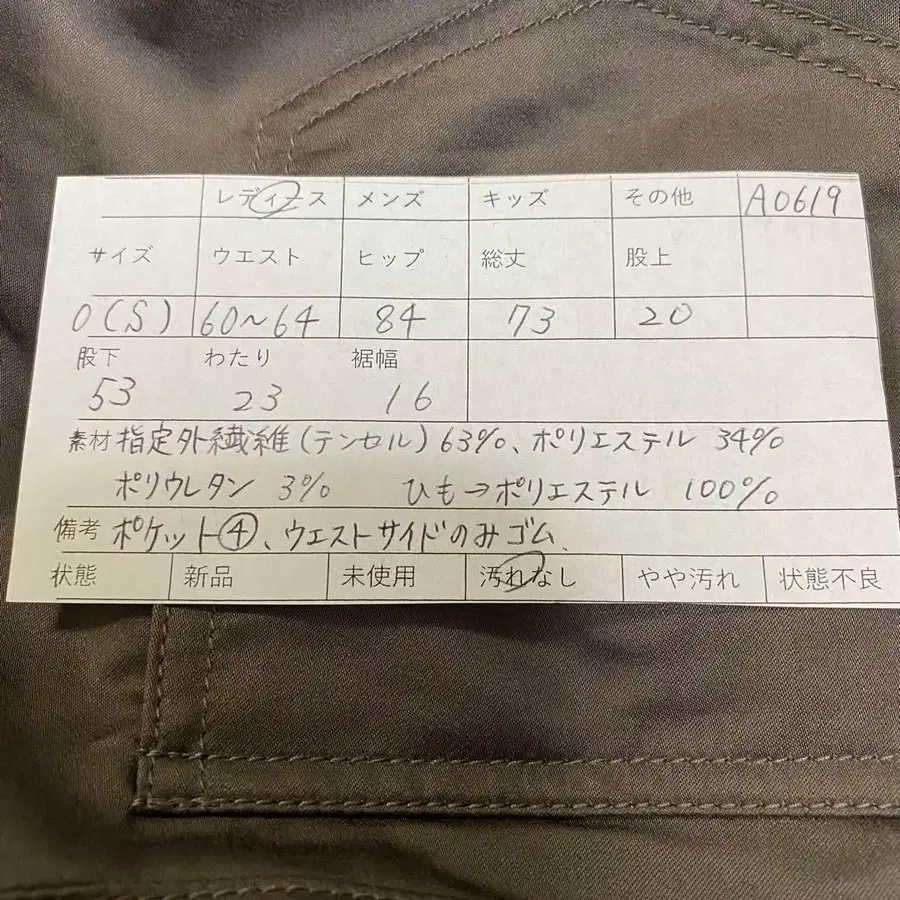 レディース メンズ キッズ その他 A0619
サイズ ウエスト ヒップ 総丈 股上
0(S) 60~64 84 73 20
股下 わたり 裾幅
53 23 16
素材 指定外繊維(テンセル)63%、ポリエステル 34%
ポリウレタン 3% ひも→ポリエステル 100%
備考 ポケット④、ウエストサイドのみゴム、
状態 新品 未使用 汚れなし やや汚れ 状態不良